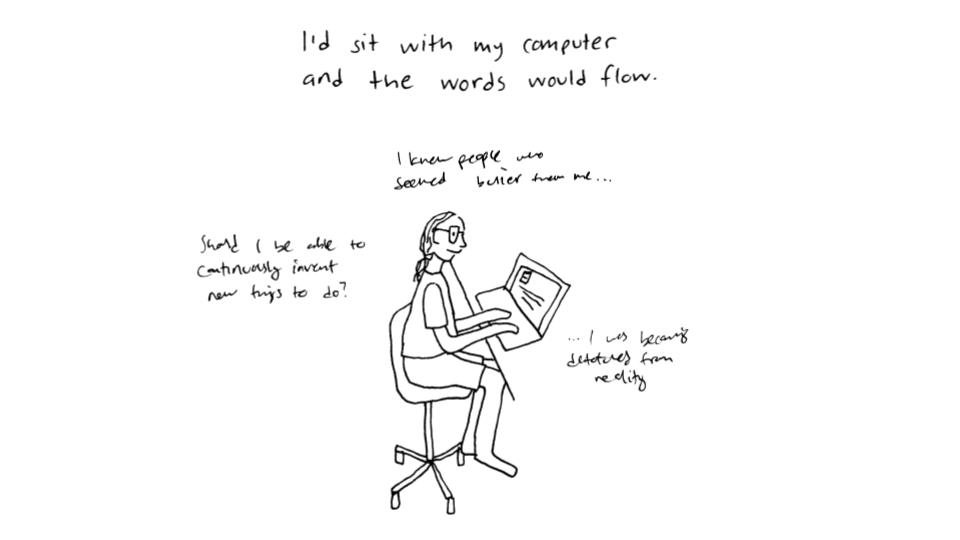 I'd sit with my computer
and the words would flow.
I knew people who
seemed busier than me...
Should I be able to
continuously invent
new things to do?
... I was becoming
detached from
reality